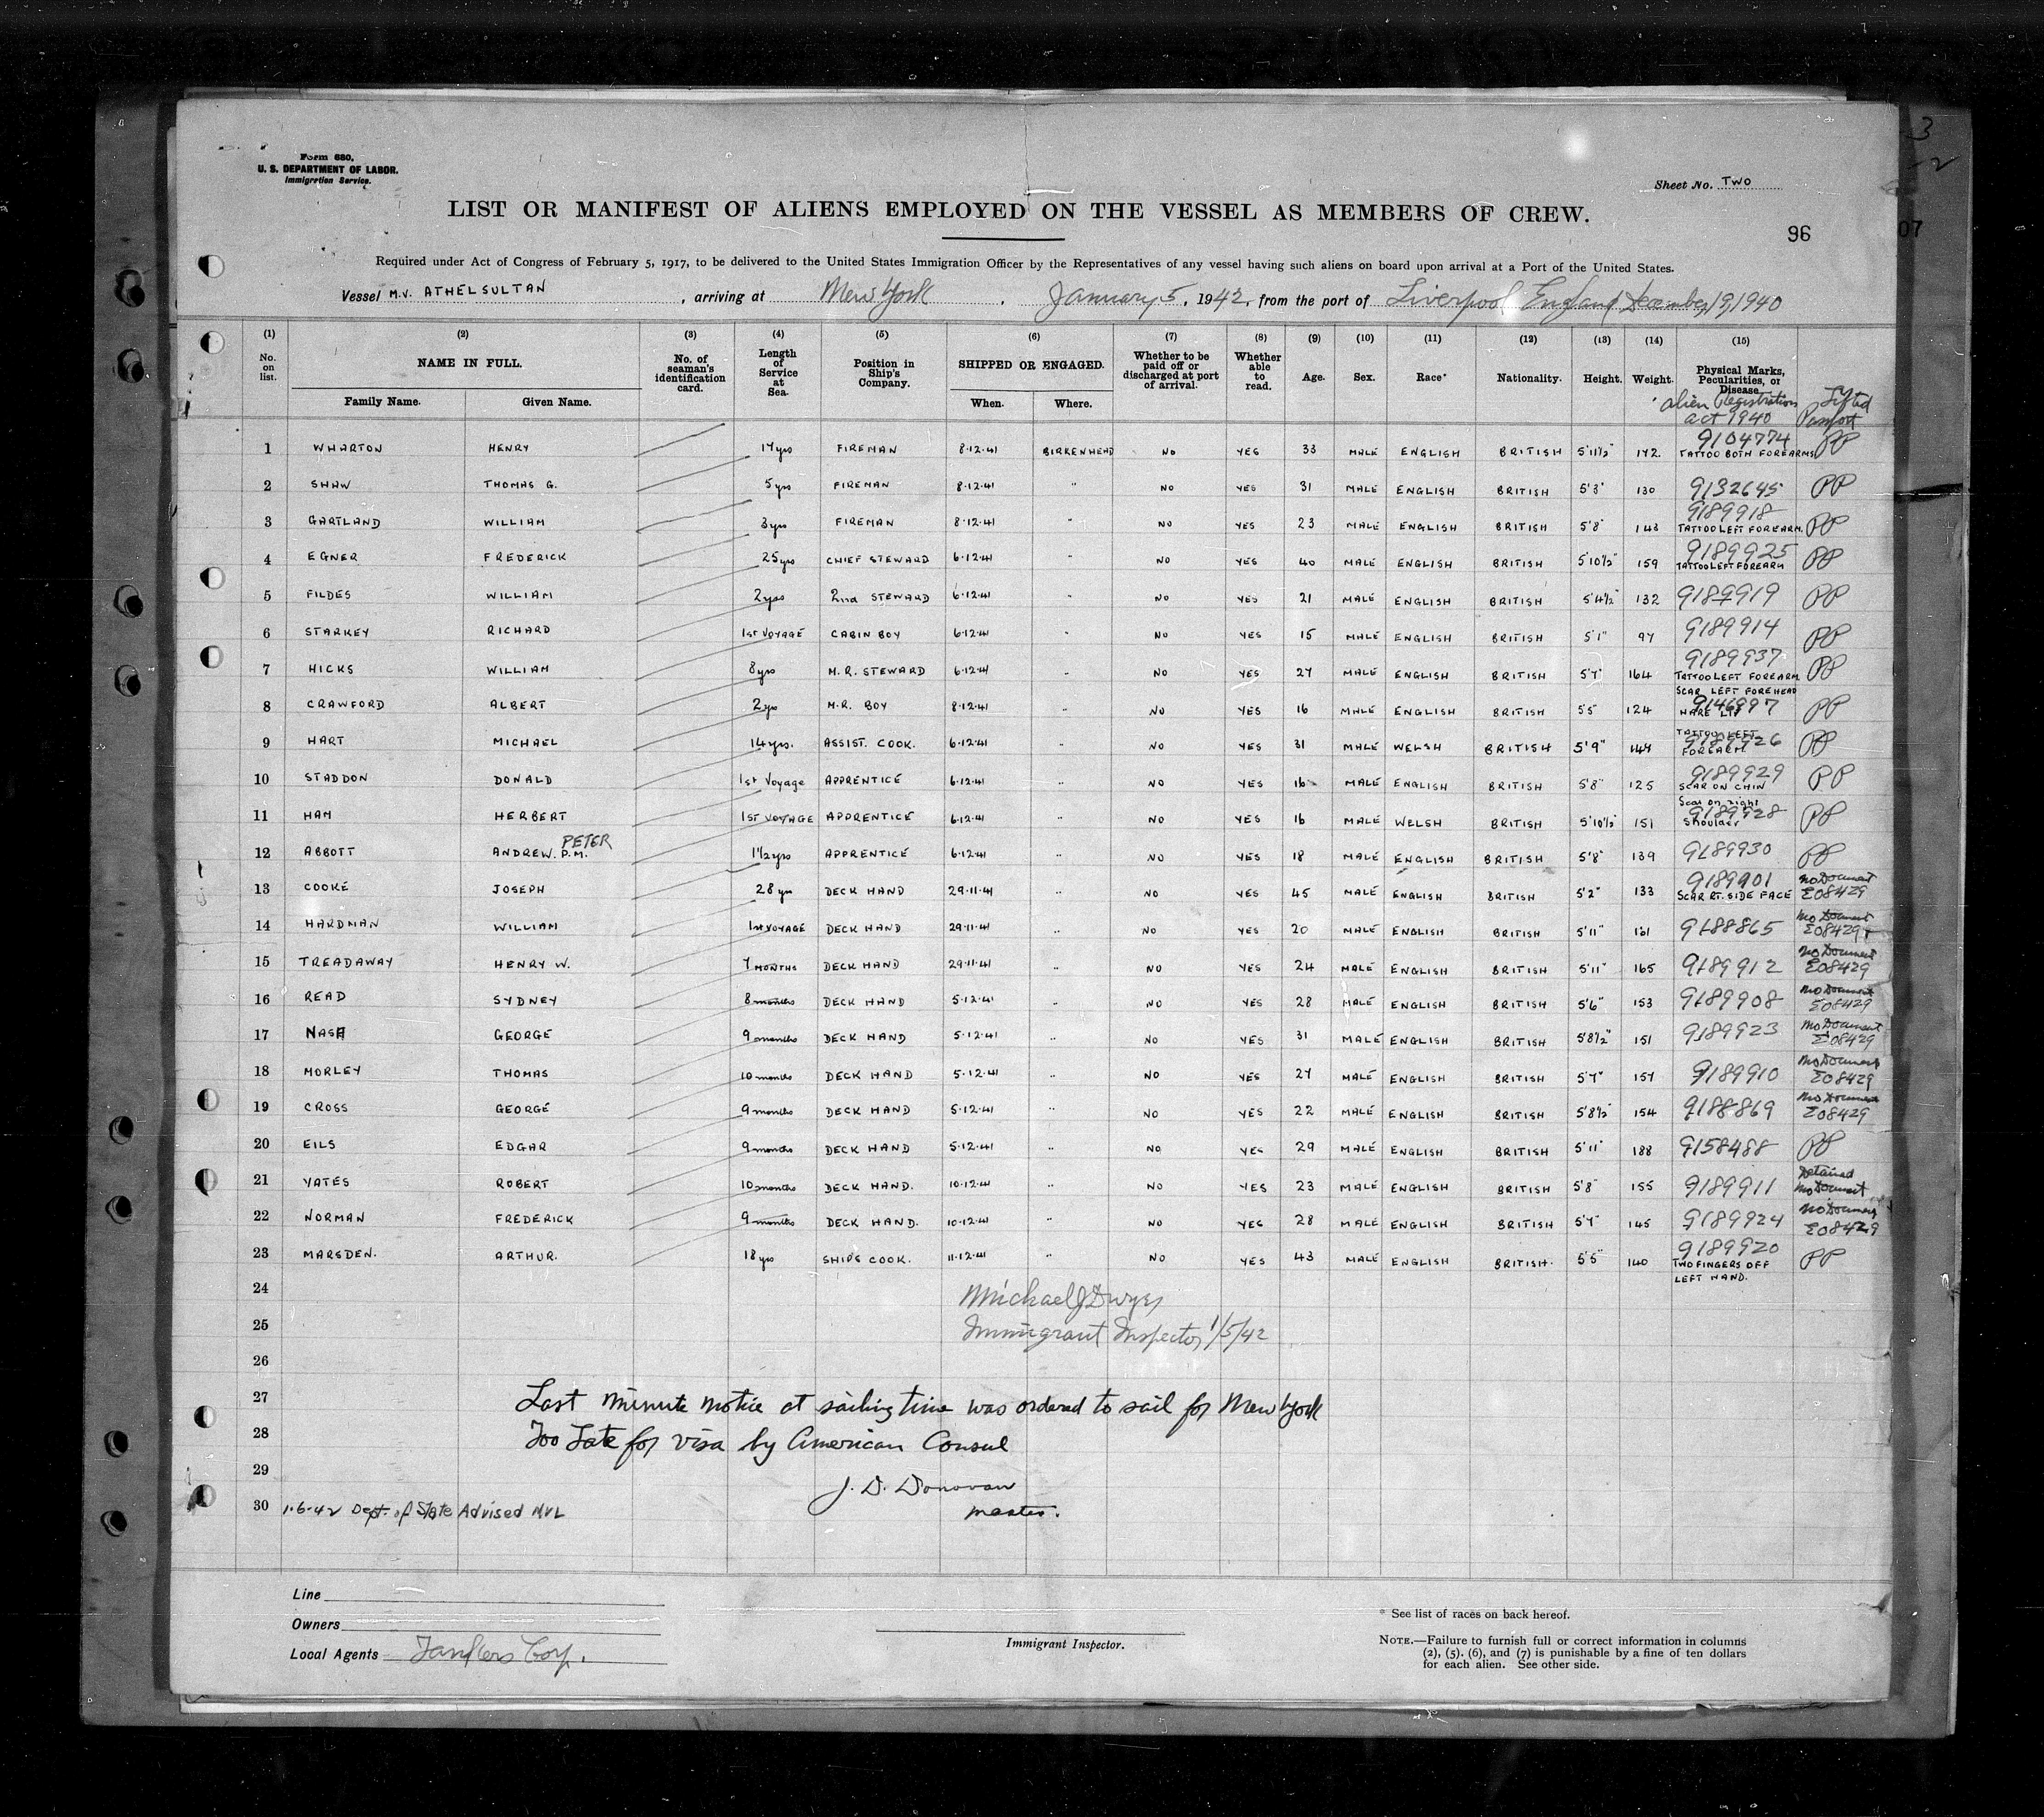 3
-2
Form 680.
U. S. DEPARTMENT OF LABOR.
Immigration Service.
Sheet No. TWO
LIST OR MANIFEST OF ALIENS EMPLOYED ON THE VESSEL AS MEMBERS OF CREW.
96
07
Required under Act of Congress of February 5, 1917, to be delivered to the United States Immigration Officer by the Representatives of any vessel having such aliens on board upon arrival at a Port of the United States.
Vessel M.V. ATHELSULTAN, arriving at New York, January 5, 1942, from the port of Liverpool England December 19, 1940
(1) (2) (3) (4) (5) (6) (7) (8) (9) (10) (11) (12) (13) (14) (15)
No. on list. NAME IN FULL. Family Name. Given Name. No. of seaman's identification card. Length of Service at Sea. Position in Ship's Company. SHIPPED OR ENGAGED. When. Where. Whether to be paid off or discharged at port of arrival. Whether able to read. Age. Sex. Race* Nationality. Height. Weight. Physical Marks, Pecularities, or Disease
Alien Registration Act 1940 Lifted Passport
1 WHARTON HENRY 17 yrs FIREMAN 8.12.41 BIRKENHEAD NO YES 33 MALE ENGLISH BRITISH 5'11½" 172 9104774 TATTOO BOTH FOREARMS PP
2 SHAW THOMAS G. 5 yrs FIREMAN 8.12.41 " NO YES 31 MALE ENGLISH BRITISH 5'3" 130 9132645 PP
3 GARTLAND WILLIAM 3 yrs FIREMAN 8.12.41 " NO YES 23 MALE ENGLISH BRITISH 5'8" 143 9189918 TATTOO LEFT FOREARM. PP
4 EGNER FREDERICK 25 yrs CHIEF STEWARD 6.12.41 " NO YES 40 MALE ENGLISH BRITISH 5'10½" 159 9189925 TATTOO LEFT FOREARM PP
5 FILDES WILLIAM 2 yrs 2nd STEWARD 6.12.41 " NO YES 21 MALE ENGLISH BRITISH 5'4½" 132 9189919 PP
6 STARKEY RICHARD 1st VOYAGE CABIN BOY 6.12.41 " NO YES 15 MALE ENGLISH BRITISH 5'1" 97 9189914 PP
7 HICKS WILLIAM 8 yrs M.R. STEWARD 6.12.41 " NO YES 27 MALE ENGLISH BRITISH 5'7" 164 9189937 TATTOO LEFT FOREARM PP
8 CRAWFORD ALBERT 2 yrs M.R. BOY 8.12.41 " NO YES 16 MALE ENGLISH BRITISH 5'5 124 SCAR LEFT FOREHEAD 9146997 HARE LIP PP
9 HART MICHAEL 14 yrs. ASSIST. COOK. 6.12.41 " NO YES 31 MALE WELSH BRITISH 5'9" 147 TATTOO LEFT FOREARM 9189926 PP
10 STADDON DONALD 1st Voyage APPRENTICE 6.12.41 " NO YES 16 MALE ENGLISH BRITISH 5'8" 125 9189929 SCAR ON CHIN PP
11 HAM HERBERT 1ST VOYAGE APPRENTICE 6.12.41 " NO YES 16 MALE WELSH BRITISH 5'10½" 151 Scar on right shoulder 9189928 PP
12 ABBOTT ANDREW. P.M. PETER 1½ yrs APPRENTICE 6.12.41 NO YES 18 MALE ENGLISH BRITISH 5'8" 139 9189930 PP
13 COOKE JOSEPH 28 yrs DECK HAND 29.11.41 " NO YES 45 MALE ENGLISH BRITISH 5'2" 133 9189901 SCAR RT. SIDE FACE No Document E08429
14 HARDMAN WILLIAM 1st VOYAGE DECK HAND 29.11.41 " NO YES 20 MALE ENGLISH BRITISH 5'11" 161 9188865 No Document E08429
15 TREADAWAY HENRY W. 7 MONTHS DECK HAND 29.11.41 " NO YES 24 MALE ENGLISH BRITISH 5'11" 165 9189912 No Document E08429
16 READ SYDNEY 8 months DECK HAND 5.12.41 " NO YES 28 MALE ENGLISH BRITISH 5'6" 153 9189908 No Document E08429
17 NASH GEORGE 9 months DECK HAND 5.12.41 " NO YES 31 MALE ENGLISH BRITISH 5'8½" 151 9189923 No Document E08429
18 MORLEY THOMAS 10 months DECK HAND 5.12.41 " NO YES 27 MALE ENGLISH BRITISH 5'7" 157 9189910 No Document E08429
19 CROSS GEORGE 9 months DECK HAND 5.12.41 " NO YES 22 MALE ENGLISH BRITISH 5'8½" 154 9188869 No Document E08429
20 EILS EDGAR 9 months DECK HAND 5.12.41 " NO YES 29 MALE ENGLISH BRITISH 5'11" 188 9158488 PP
21 YATES ROBERT 10 months DECK HAND. 10.12.41 " NO YES 23 MALE ENGLISH BRITISH 5'8" 155 9189911 Detained No Document
22 NORMAN FREDERICK 9 months DECK HAND. 10.12.41 " NO YES 28 MALE ENGLISH BRITISH 5'7" 145 9189924 No Document E08429
23 MARSDEN. ARTHUR. 18 yrs SHIPS COOK. 11.12.41 " NO YES 43 MALE ENGLISH BRITISH. 5'5" 140 9189920 TWO FINGERS OFF LEFT HAND. PP
24 Michael J Dwyer
25 Immigrant Inspector 1/5/42
26
27 Last minute notice at sailing time was ordered to sail for New York
28 Too Late for visa by American Consul
29 J. D. Donovan
30 1.6.42 Dept. of State Advised MVL master.
Line
Owners
Local Agents Tankers Corp.
Immigrant Inspector.
* See list of races on back hereof.
NOTE.—Failure to furnish full or correct information in columns
(2), (5), (6), and (7) is punishable by a fine of ten dollars
for each alien. See other side.